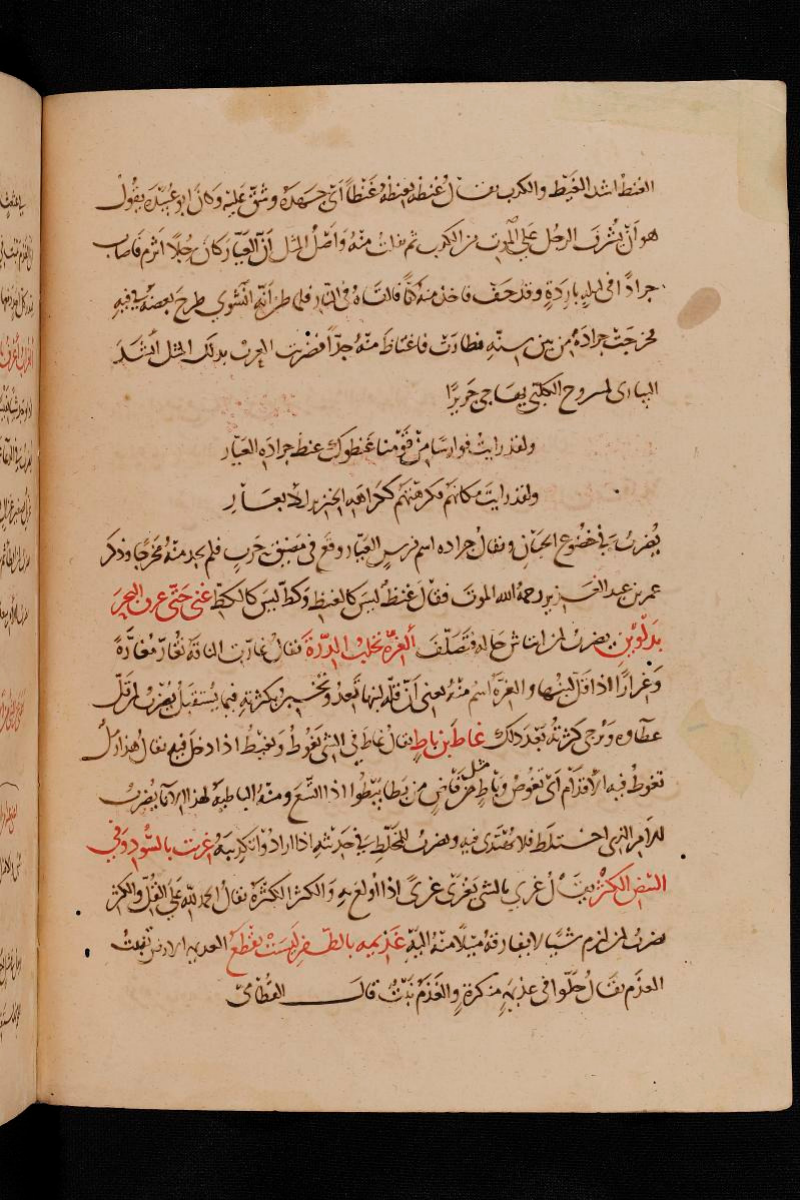 الغنظ اشد الغيظ والكرب يقال غنظه يغنظه غنظاً اى جهده وشق عليه وكان ابو عبيدة يقول
هو ان يشرف الرجل على الموت من الكرب ثم يفلت منه واصل المثل ان العيار كان رجلاً اثرم فاصاب
جرادًا فى ليلة باردة وقد جف فاخذ منه كفا فالقاه فى النار فلما ظن انه انشوى طرح بعضه فى فيه
فخرجت جرادة من بين سنيه فطارت فاغتاظ منه جدّاً فضربت العرب بذلك المثل انشد
البيارى لمسروح الكلبى يهاجى جريرًا
ولقد رايت فوارسًا من قومنا غنظوك غنظ جراده العيّار
ولقد رايت مكانهم فكرهتهم ككراهيه الخنزير للايغار
يضرب فى خضوع الجبان ويقال جراده اسم فرس العيار وقع فى مضيق حرب فلم يجد منه مخرجًا وذكر
عمر بن عبد العزيز رحمه الله الموت فقال غنظ ليس كالغنظ وكظ ليس كالكظ غنى حتى عرف البحر
بدلوين يضرب لمن انتاش حاله فتصلف الغرة تجلب الدرة يقال غارت الناقة تغار مغارّة
وغرارًا اذا قل لبنها والغرة اسم منه يعنى ان قلة لبنها تعد وتخبر بكثرته فيما يستقبل يضرب لمن قل
عطاوه ويرجى كثرته بعد ذلك غاط بن باط يقال غاط فى الشى يغوط ويغيط اذا دخل فيه يقال هذا رمل
تغوط فيه الاقدام اى تغوص وباط مثل قاض من بطا يبطوا اذا اتسع ومنه الباطية لهذا الاناء يضرب
للامر الذى اختلط فلا يهتدى فيه ويضرب للمخلط فى حديثه اذا ارادوا تكذيبه غريت بالسود وفى
البيض الكثر يقال غرى بالشى يغرى غرىً اذا اولع به والكثر الكثرة يقال الحمد لله على القل والكثر
يضرب لمن لزم شيًا لا يفارقه ميلًا منه اليه غذيمه بالظفر ليست تقطع الغذيمه الارض تنبت
الغذم يقال حلوا فى غذيمة منكرة والغذم نبت قال القطامى